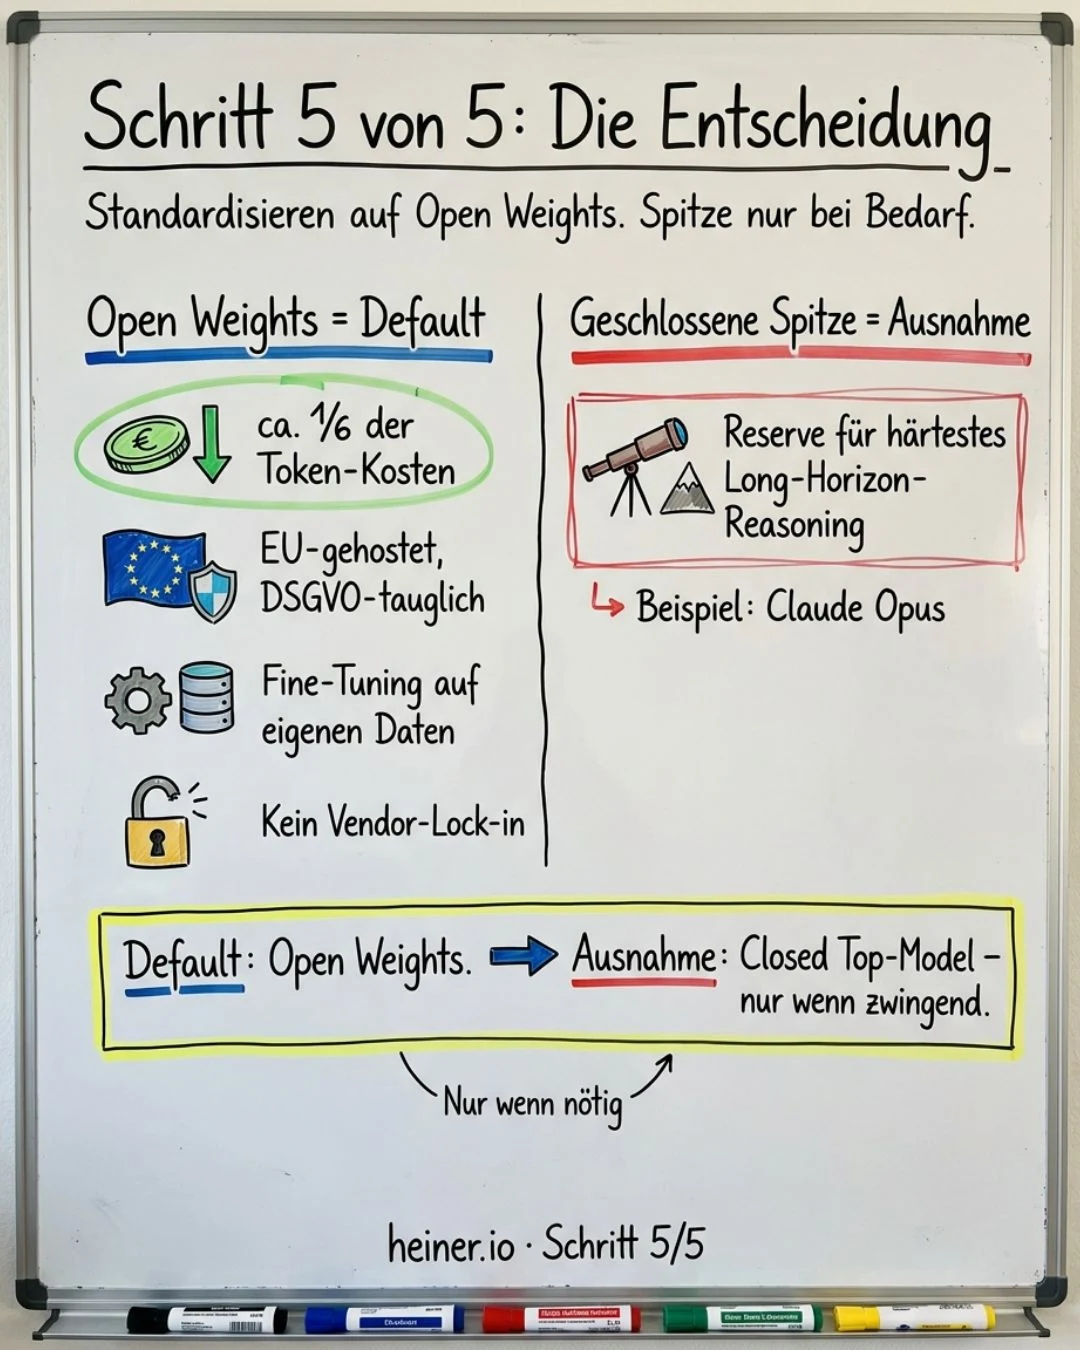 Schritt 5 von 5: Die Entscheidung
Standardisieren auf Open Weights. Spitze nur bei Bedarf.
Open Weights = Default
€
ca. 1/6 der
Token-Kosten
EU-gehostet,
DSGVO-tauglich
Fine-Tuning auf
eigenen Daten
Kein Vendor-Lock-in
Geschlossene Spitze = Ausnahme
Reserve für härtestes
Long-Horizon-
Reasoning
Beispiel: Claude Opus
Default: Open Weights.
Ausnahme: Closed Top-Model –
nur wenn zwingend.
Nur wenn nötig
heiner.io · Schritt 5/5